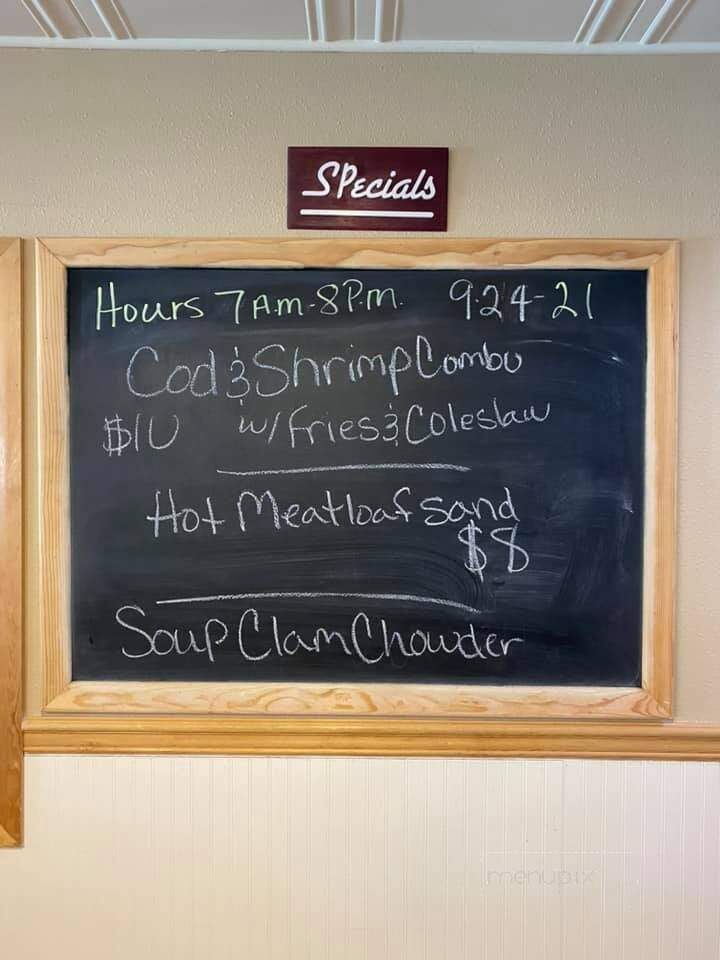 SPecials
Hours 7Am-8P.m. 9-24-21
Cod & Shrimp Combo
$10 w/ Fries & Coleslaw
Hot Meatloaf sand
$8
Soup Clam Chowder
menupix